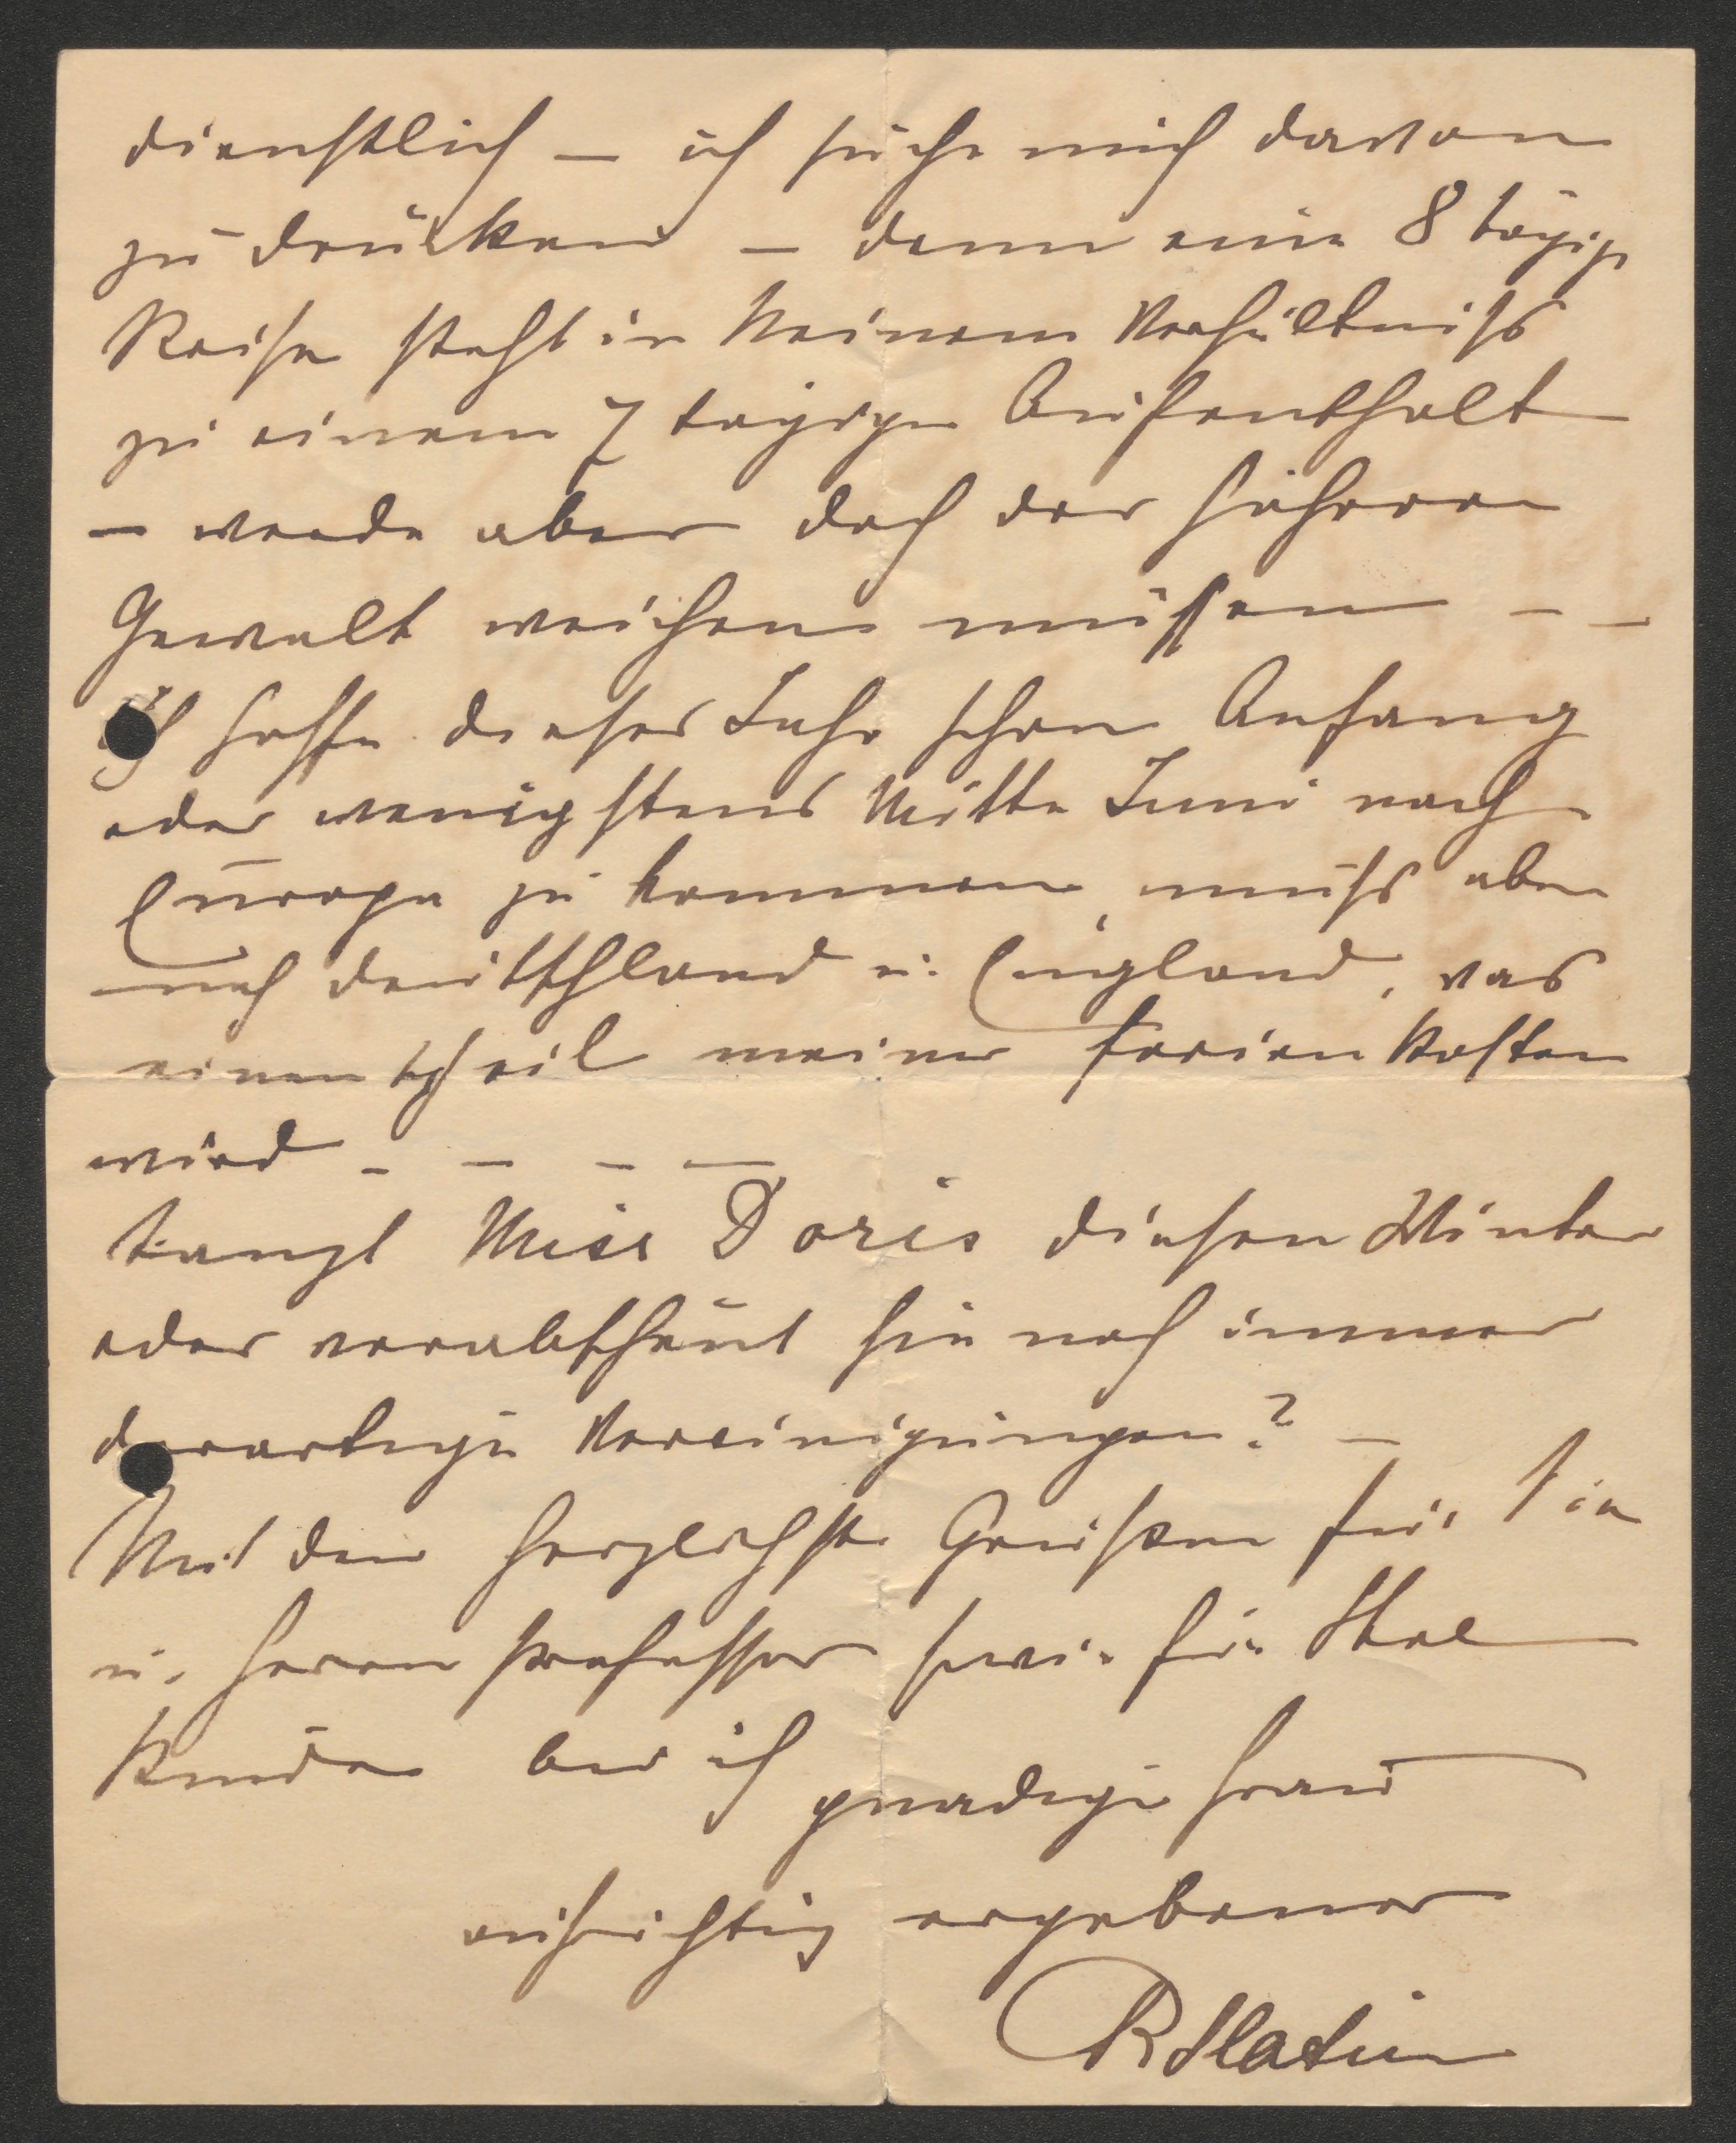 dienstlich – ich suche mich davon
zu drücken – denn eine 8 tägige
Reise steht in keinem Verhältniss
zu einem 7 tägigen Aufenthalt
– werde aber doch der höheren
Gewalt weichen müssen – –
Ich hoffe dieses Jahr schon Anfang
oder wenigstens Mitte Juni nach
Europa zu kommen, muss aber
nach Deutschland u. England, was
einen Theil meiner Ferien kosten
wird – – – –
Tanzt Miss Doris diesen Winter
oder verabscheut sie noch immer
derartige Vereinigungen? –
Mit den herzlichsten Grüssen für Sie
u. Herrn Professor sowie für Ihre
Kinder bin ich gnädige Frau
aufrichtig ergebener
R Slatin